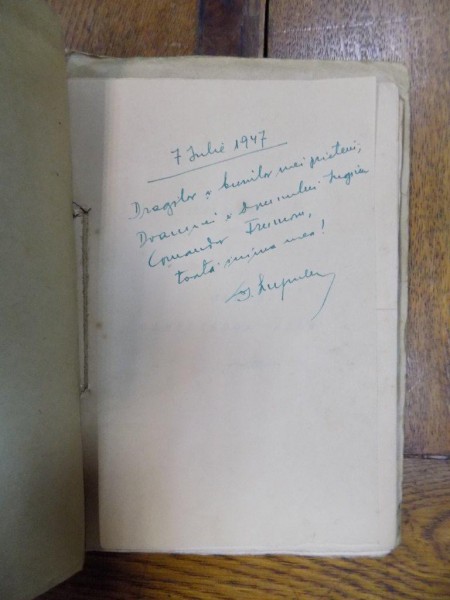 7 Iulie 1947
Dragilor și bunilor mei prieteni,
Doamnei și Domnului Inginer
Comandor
toată inima mea!